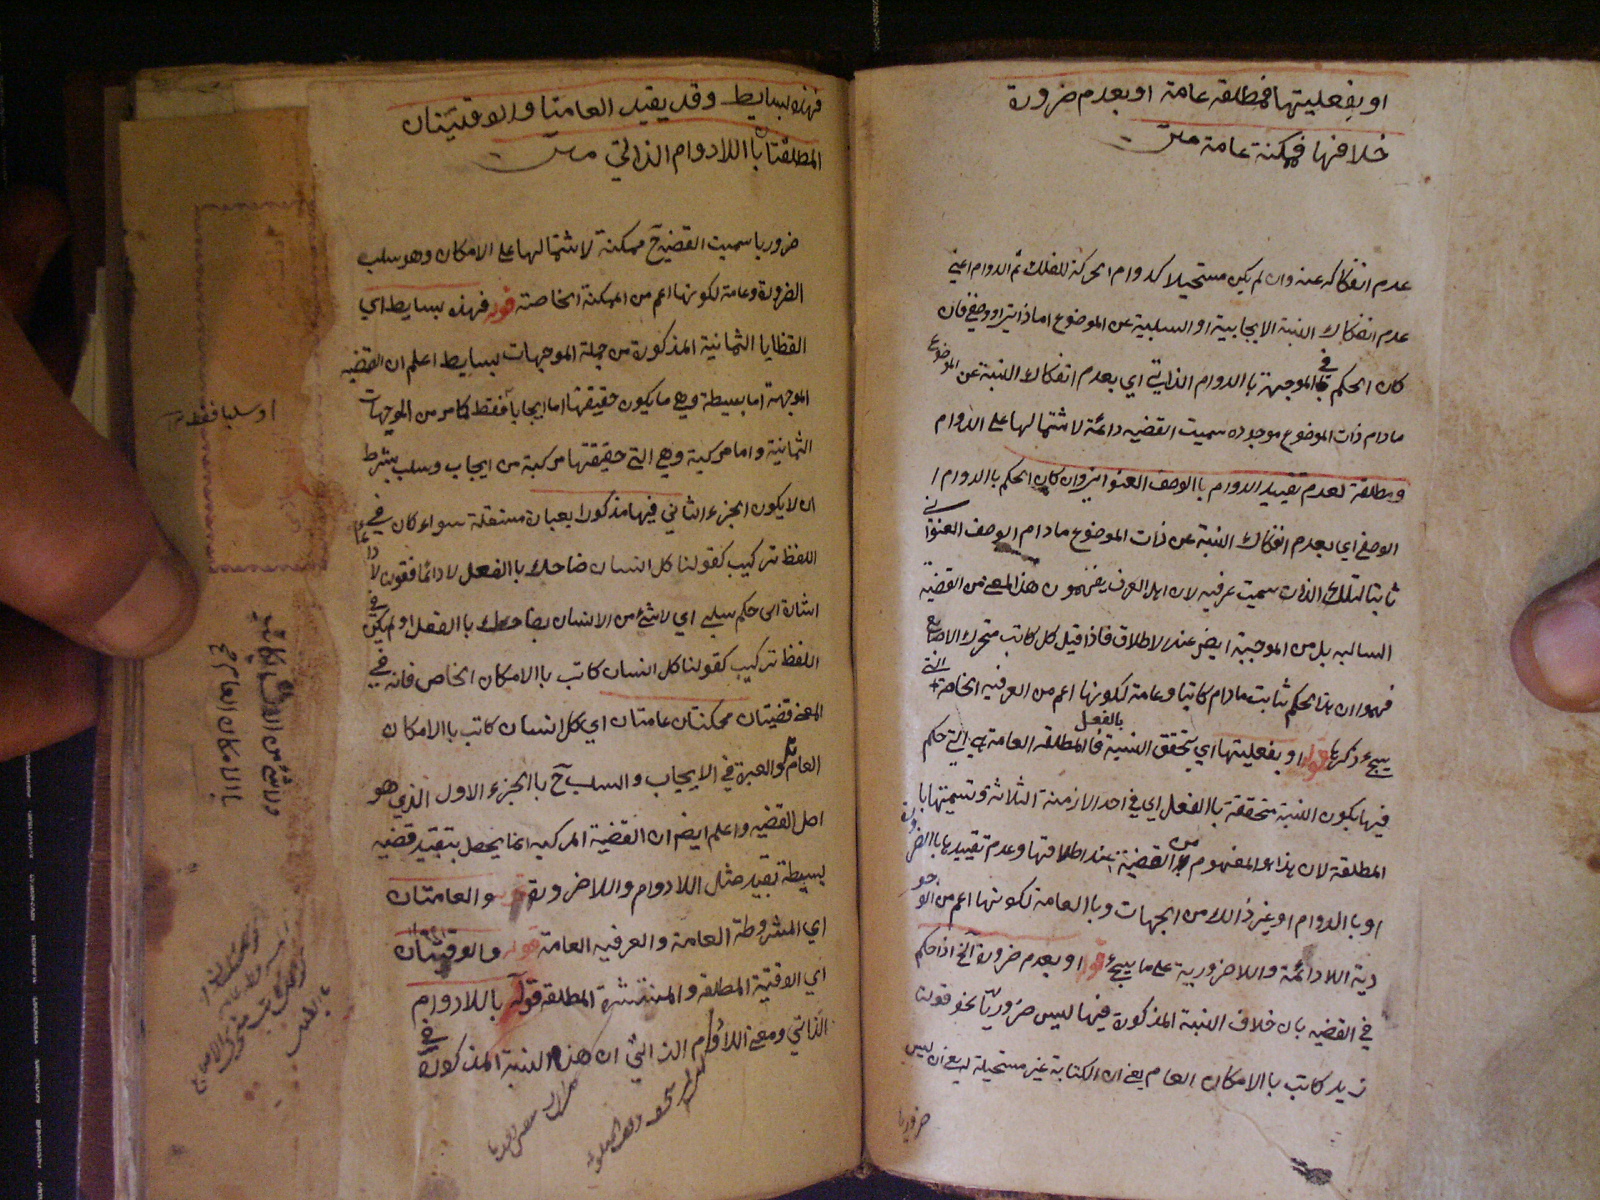 او بفعليتها فمطلقة عامة او بعدم ضرورة
خلافها فممكنة عامة متن
عدم انفكاكه عنه وان لم يكن مستحيلا كدوام الحركة للفلك ثم الدوام اعني
عدم انفكاك النسبة الايجابية او السلبية عن الموضوع اما ذاتي او وصفي فان
كان الحكم في الموجهة باالدوام الذاتي اي بعدم انفكاك النسبة عن الموضوع
مادام ذات الموضوع موجوده سميت القضيه دائمة لاشتمالها على الدوام
ومطلقة لعدم تقييد الدوام باالوصف العنواني وان كان الحكم باالدوام ا
الوصفي اي بعدم انفكاك النسبة عن ذات الموضوع مادام الوصف العنواني
ثابتا لتلك الذات سميت عرفيه لان اهل العرف يفهمون هذا المعنى من القضية
السالبه بل من الموجبة ايضا عند الاطلاق فاذا قيل كل كاتب متحرك الاصابع
فهموا ان هذا الحكم ثابت مادام كاتبا وعامة لكونها اعم من العرفيه الخاصة التي
يجيء ذكرها قوله او بفعليتها اي يتحقق النسبة بالفعل فالمطلقه العامة هي التي حكم
فيها بكون النسبة متحققة باالفعل اي في احد الازمنة الثلاثة وتسميتها با
المطلقة لان هذا هو المفهوم من القضية عند اطلاقها وعدم تقييدها باالضرورة
او باالدوام او غير ذالك من الجهات وباالعامة لكونها اعم من الوجو
دية اللادائمة واللاضرورية على ما يجيء قوله او بعدم ضرورة الخ اذا حكم
في القضيه بان خلاف النسبة المذكورة فيها ليس ضروريّا نحو قولنا
زيد كاتب باالامكان العام يعني ان الكتابة غير مستحيلة له يعني ان ليس
ضروريا
فهذه بسايط وقد يقيد العامتا والوقتيتان
المطلقتان باللادوام الذاتي متن
ضروريا سميت القضية ح ممكنة لاشتمالها على الامكان وهو سلب
الضرورة وعامة لكونها اعم من الممكنة الخاصة قوله فهذه بسايط اي
القظايا الثمانية المذكورة من جملة الموجهات بسايط اعلم ان القضيه
الموجهة اما بسيطة وهي ما يكون حقيقتها اما ايجابا فقط كما مر من الموجهات
او سلبا فقط
الثمانية واما مركبة وهي التي حقيقتها مركبة من ايجاب وسلب بشرط
ان لا يكون الجزء الثاني فيها مذكورا بعبارة مستقلة سواء كان في
اللفظ تركيب كقولنا كل انسان ضاحك باالفعل لا دائما فقولنا لا دائما
اشارة الى حكم سلبي اي لا شئ من الانسان بضاحك باالفعل او لم يكن في
اللفظ تركيب كقولنا كل انسان كاتب باالامكان الخاص فانه في
المعنى قضيتان ممكنتان عامتان اي كل انسان كاتب باالامكان
العام والعبرة في الايجاب والسلب ح باالجزء الاول الذي هو
ولا شئ من الانسان بكاتب
بالامكان العام
اصل القضيه واعلم ايضا ان القضية المركبه انما يحصل بتقييد قضيه
بسيطة بقيد مثل اللادوام واللاضرورة قوله والعامتان
اي المشروطة العامة والعرفيه العامة قوله والوقتيتان
اي الوقتية المطلقه والمنتشرة المطلقه قوله باللادوام
الذاتي ومعنى اللادوام الذاتي ان هذه النسبة المذكورة في